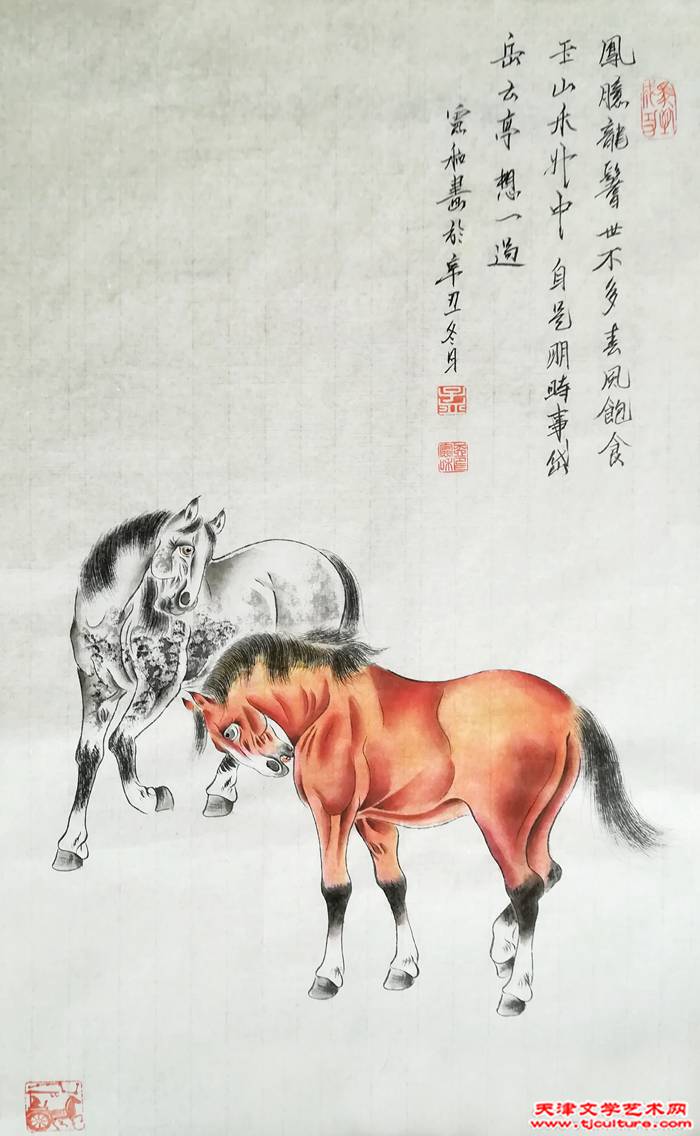 鳳臆龍鬐世不多春风飽食
玉山禾升中自是明時事岱
岳云亭想一過
霊和畫於辛丑冬月
天津文学艺术网
www.tjculture.com